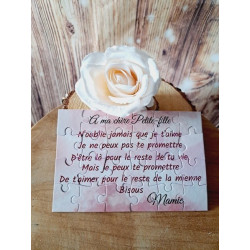 A ma chère Petite-fille
N'oublie jamais que je t'aime
Je ne peux pas te promettre
D'être là pour le reste de ta vie
Mais je peux te promettre
De t'aimer pour le reste de la mienne
Bisous
Mamie